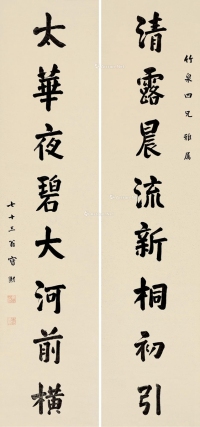 竹泉四兄雅屬
清露晨流新桐初引
太華夜碧大河前橫
七十三翁寶熙